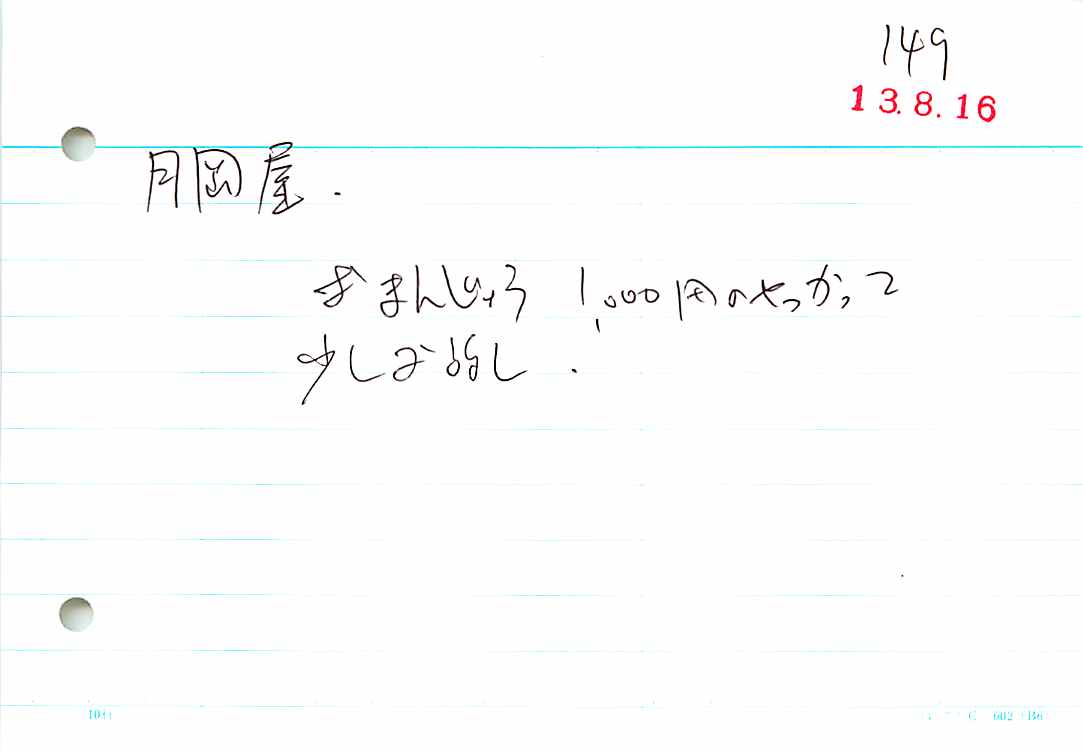 149
13.8.16
月岡屋.
おまんじゅう 1,000円のやつかって
少しお話し.
602